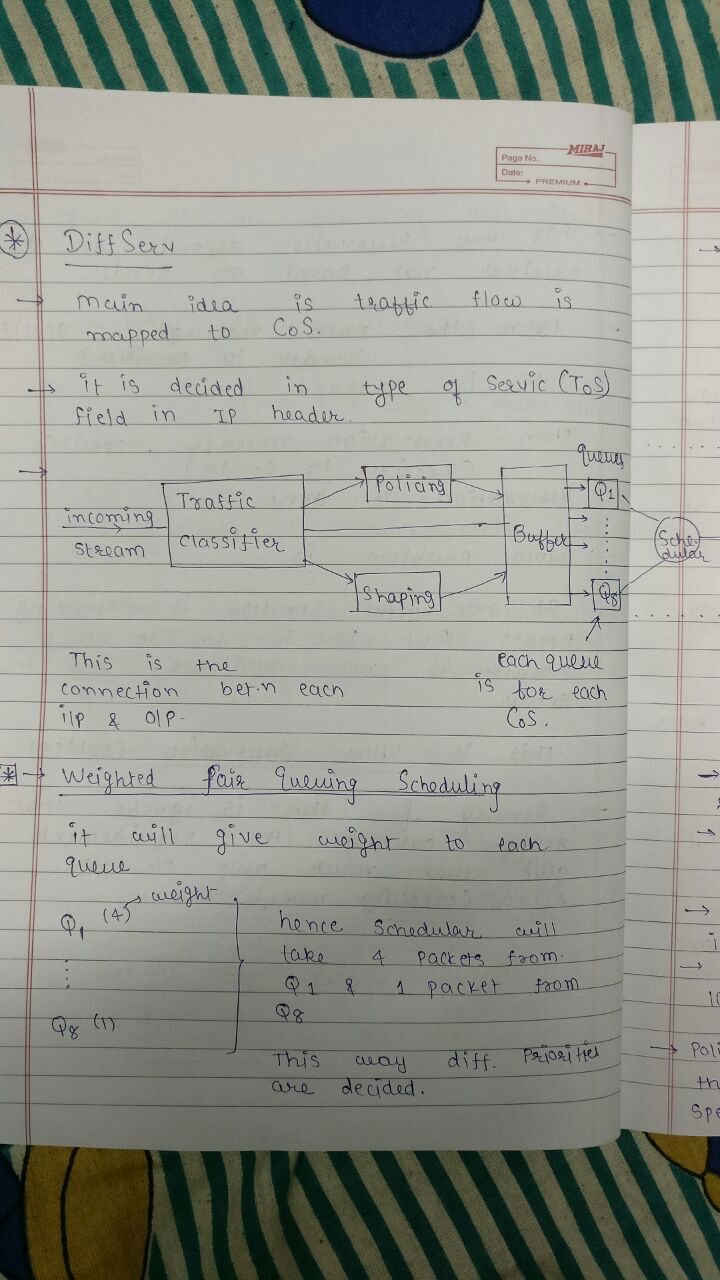 MIRAJ
Page No.
Date:
PREMIUM
* DiffServ
→ main idea is traffic flow is
mapped to CoS.
→ it is decided in type of Servic (ToS)
field in IP header.
→
queues
incoming
stream
Traffic
classifier
Policing
Shaping
Buffer
Q1
Q8
Sche-
dular
This is the
connection bet.n each
i/p & O/P.
each queue
is for each
CoS.
* → Weighted fair Queuing Scheduling
it will give weight to each
queue
Q1 (4) → weight
Q8 (1)
hence schedular will
take 4 packets from
Q1 & 1 packet from
Q8
This way diff. Priorities
are decided.
10
→ Poli
th
Spe